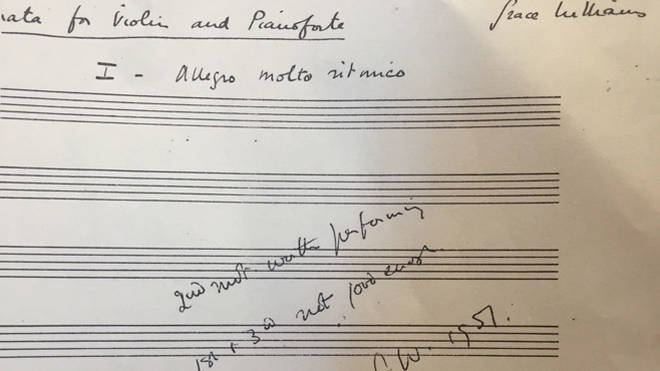 nata for Violin and Pianoforte
Grace Williams
I - Allegro molto ritmico
2nd mvt. worth performing
1st + 3rd not good enough.
G.W. 1957.